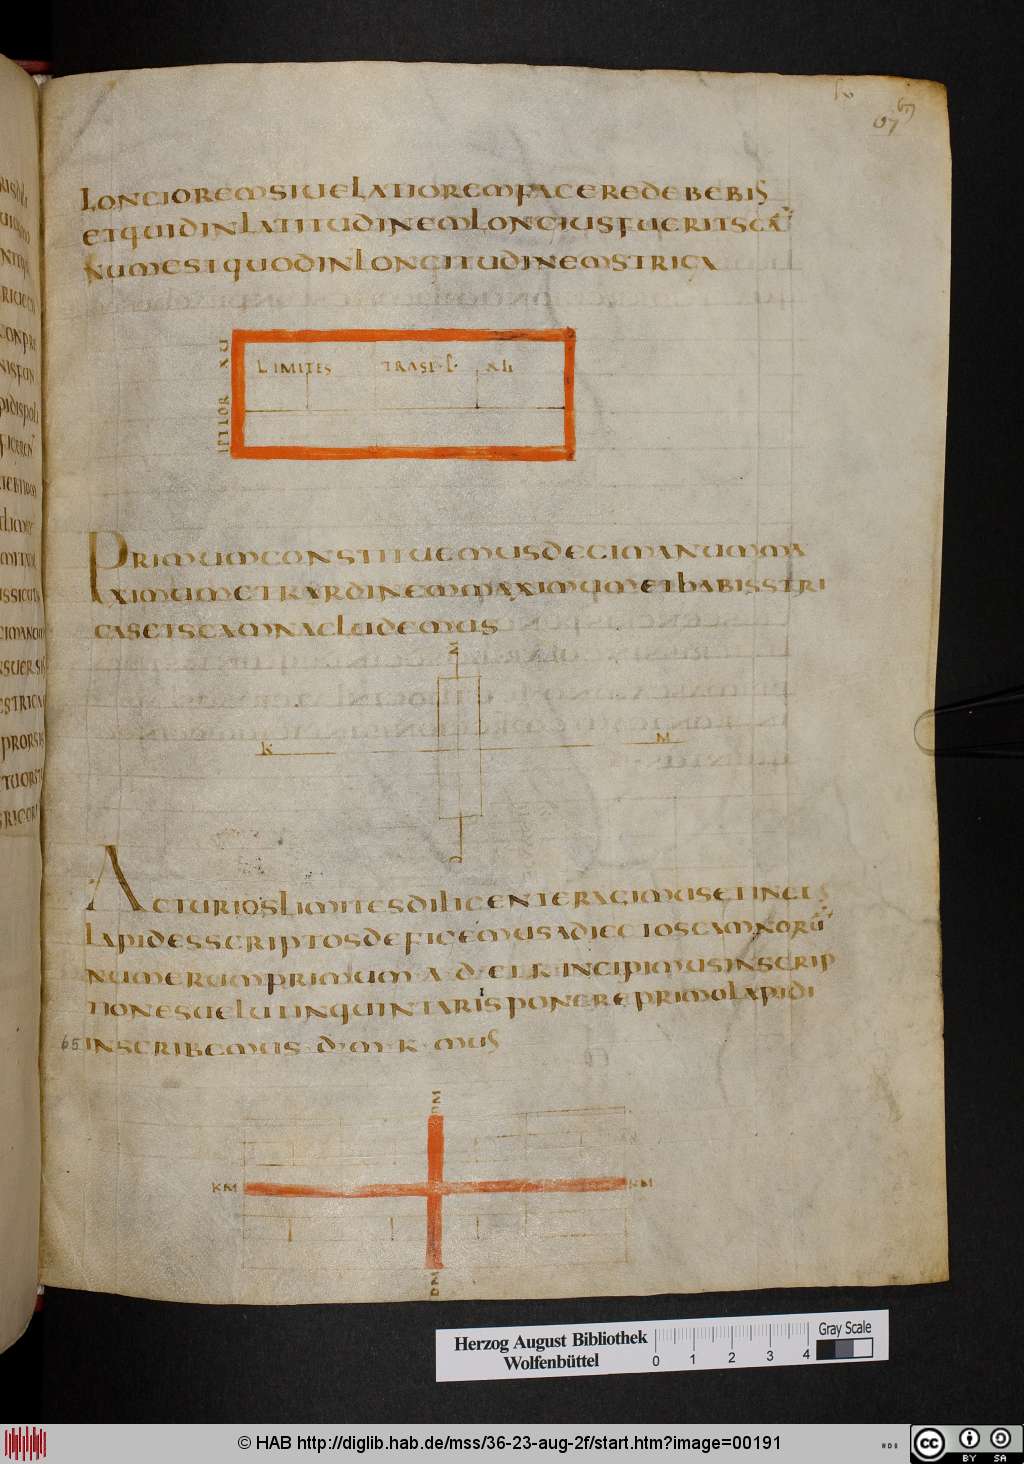 67
LONGIOREMSIUELATIOREMFACEREDEBEBIS
ETQUIDINLATITUDINEMLONGIUSFUERITSCA
NUMESTQUODINLONGITUDINEMSTRIGA
LIMITES TRASI
PRIMUMCONSTITUEMUSDECIMANUMMA
XIMUMETKARDINEMMAXIMUMETHABISSTRI
GASETSCAMNACLUDEMUS
K M
ACTURIOSLIMITESDILIGENTERAGIMUSETINEIS
LAPIDESSCRIPTOSDEFIGEMUSADIECTOSCAMNORU
NUMERUMPRIMUM A D ET K INCIPIMUSINSCRIP
TIONESUELUTINQUINTARIS PONERE PRIMOLAPIDI
65 INSCRIBEMUS D M K MUS
DM
KM KM
DM
Herzog August Bibliothek
Wolfenbüttel
0 1 2 3 4
Gray Scale
© HAB http://diglib.hab.de/mss/36-23-aug-2f/start.htm?image=00191
CC BY SA